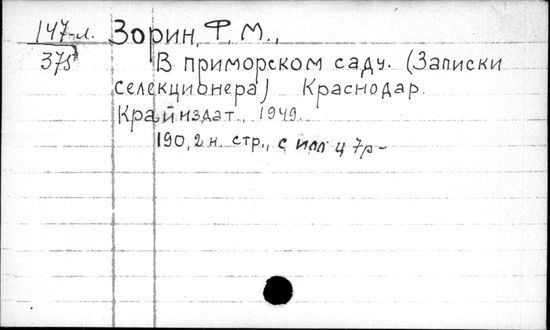 147-л. Зорин, Ф. М.,
375 В приморском саду. (Записки
селекционера) Краснодар.
Крайиздат., 1949.
190, 2 н. стр., с илл ц 7р-